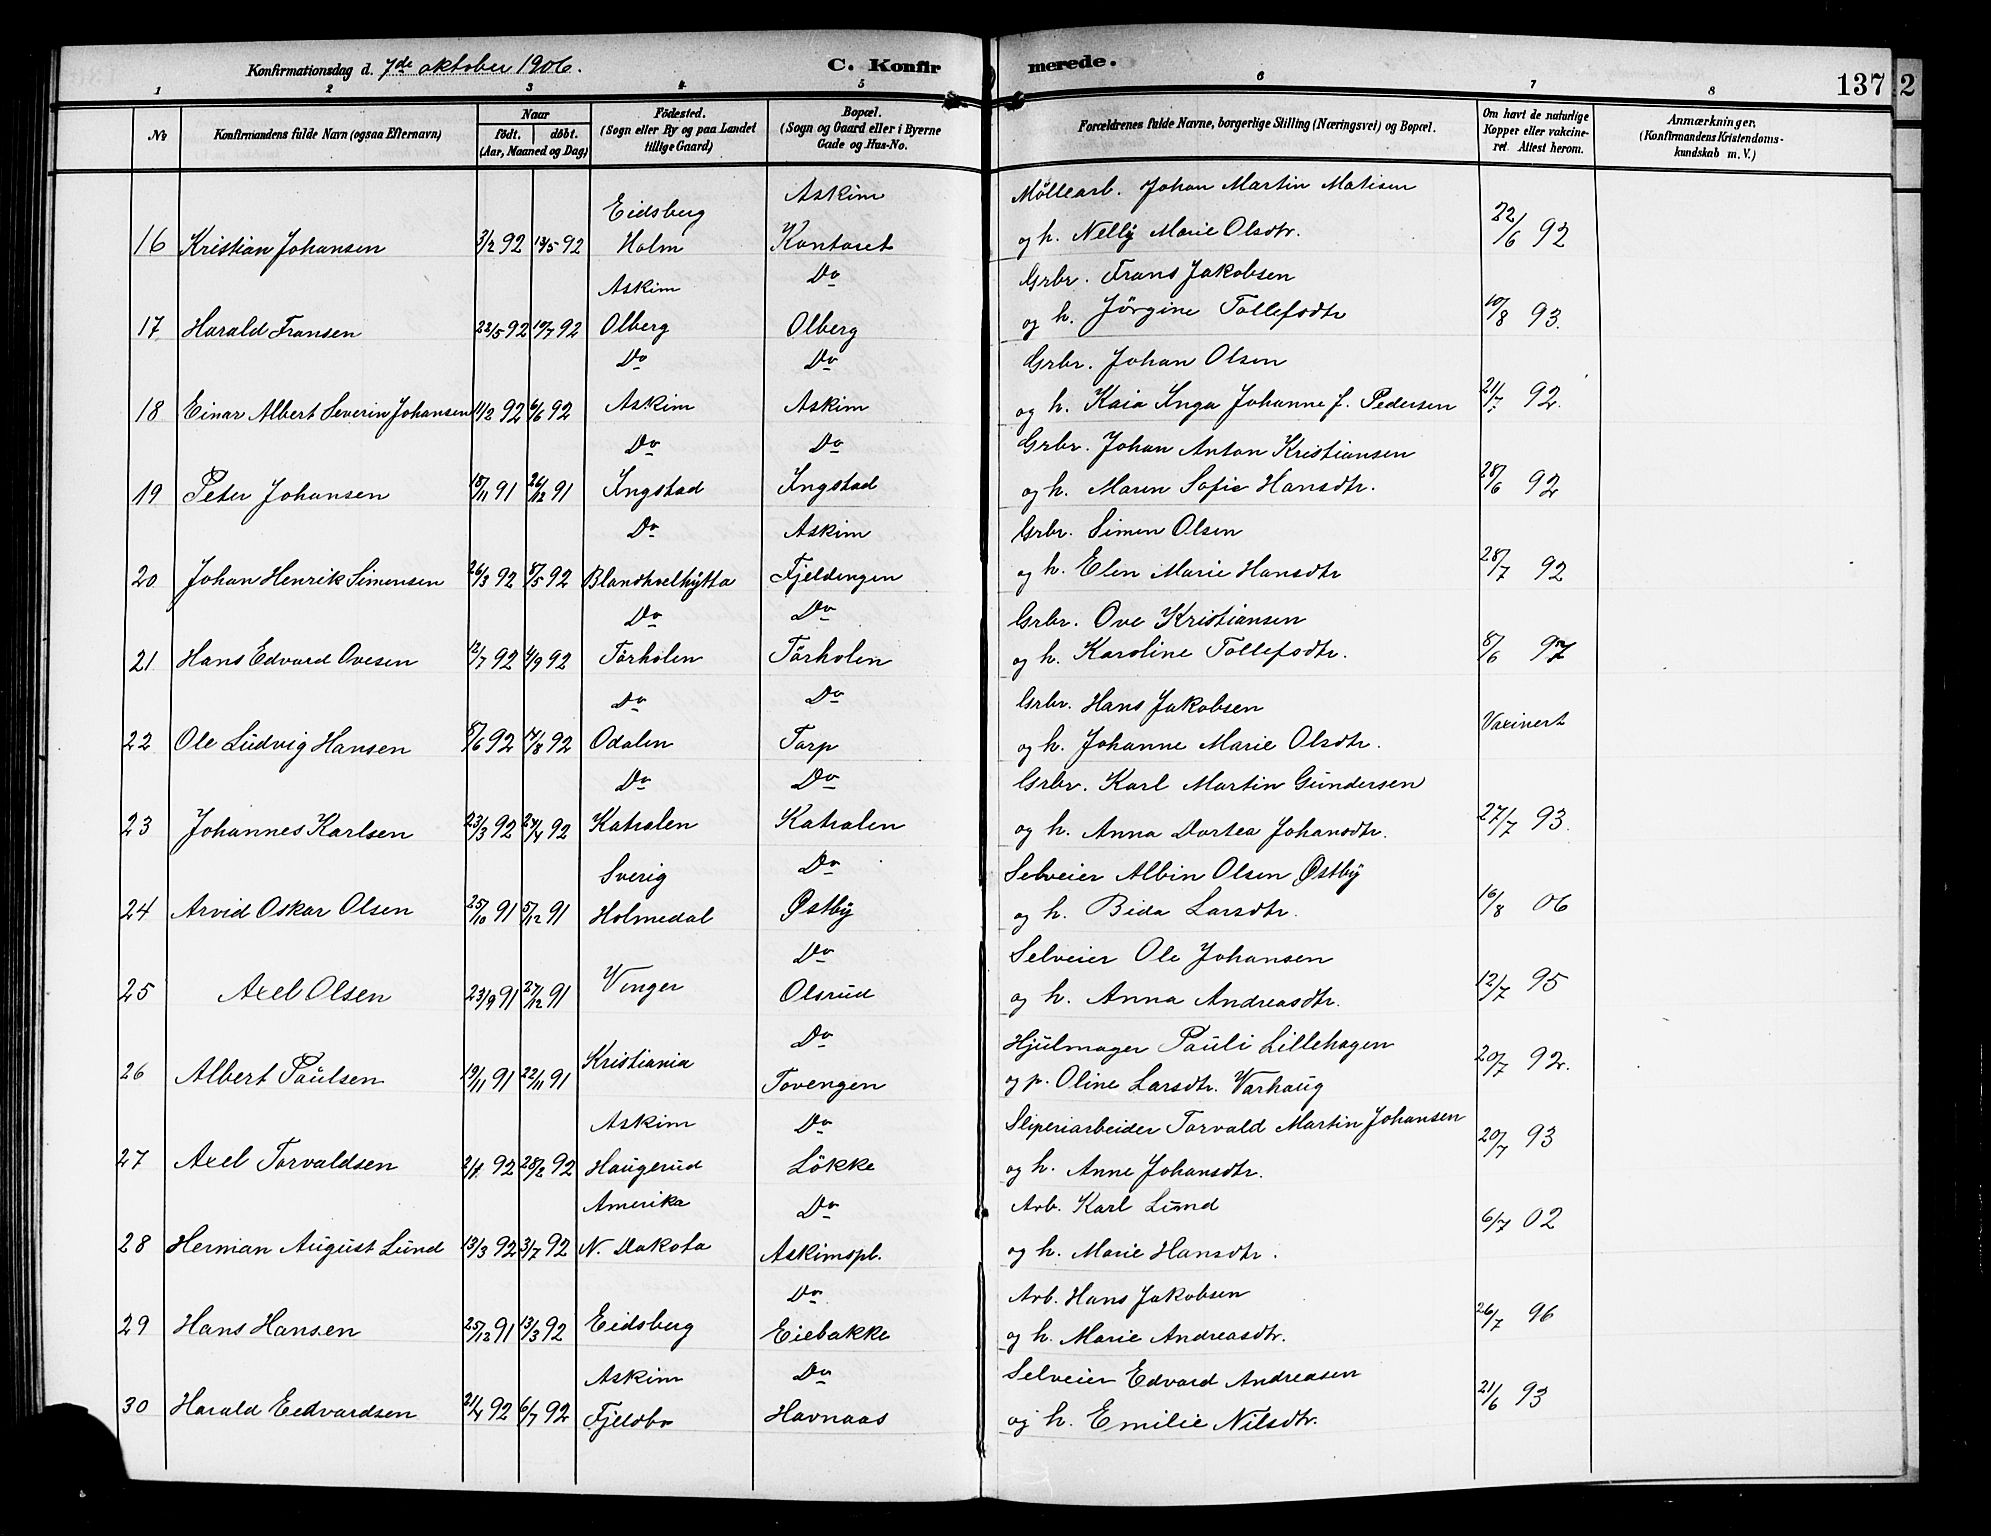 Konfirmationsdag d. 7de oktober 1906. C. Konfirmerede. 137 2
1 2 3 4 5 6 7 8
No Konfirmandens fulde Navn (ogsaa Efternavn) Naar født. døbt. (Aar, Maaned og Dag) Fødested. (Sogn eller By og paa Landet tillige Gaard) Bopæl. (Sogn og Gaard eller i Byerne Gade og Hus-No. Forældrenes fulde Navne, borgerlige Stilling (Næringsvei) og Bopæl. Om havt de naturlige Kopper eller vakcineret. Attest herom. Anmærkninger. (Konfirmandens Kristendomskundskab m. V.)
Eidsberg Askim Møllearb. Johan Martin Matisen
16 Kristian Johansen 3/2 92 13/5 92 Holm Kontoret og h. Nelly Marie Olsdtr. 22/6 92
Askim Do Grbr. Frans Jakobsen
17 Harald Fransen 22/5 92 10/7 92 Olberg Olberg og h. Jörgine Tollefsdtr 10/8 93.
Do Do Grbr. Johan Olsen
18 Einar Albert Severin Johansen 11/2 92 6/6 92 Askim Askim og h. Kaia Inga Johanne f. Pedersen 21/7 92.
Do Do Grbr. Johan Anton Kristiansen
19 Peter Johansen 18/11 91 26/12 91 Ingstad Ingstad og h. Maren Sofie Hansdtr. 28/6 92
Do Askim Grbr. Simen Olsen
20 Johan Henrik Simensen 26/3 92 8/5 92 Blandkvelhytta Fjeldengen og h. Elen Marie Hansdtr 28/7 92
Do Do Grbr. Ove Kristiansen
21 Hans Edvard Ovesen 12/7 92 4/9 92 Törholen Törholen og h. Karoline Tollefsdtr. 8/6 97
Do Do Grbr. Hans Jakobsen
22 Ole Ludvig Hansen 8/6 92 14/8 92 Odalen Torp og h. Johanne Marie Olsdtr. Vaxinert
Do Do Grbr. Karl Martin Gundersen
23 Johannes Karlsen 23/3 92 24/4 92 Katralen Katralen og h. Anna Dortea Johansdtr. 27/7 93.
Sverig Do Selveier Albin Olsen Østby
24 Arvid Oskar Olsen 25/10 91 5/12 91 Holmedal Østby og h. Bida Larsdtr. 16/8 06
Do Selveier Ole Johansen
25 Axel Olsen 23/9 91 27/12 91 Vinger Olsrud og h. Anna Andreasdtr. 12/7 95
Do Hjulmager Pauli Lillehagen
26 Albert Paulsen 19/11 91 22/11 91 Kristiania Tovengen og p. Oline Larsdtr. Varhaug 20/7 92.
Askim Do Sliperiarbeider Torvald Martin Johansen
27 Axel Torvaldsen 2/1 92 28/2 92 Haugerud Lökke og h. Anne Johansdtr. 20/7 93
Amerika Do Arb. Karl Lund
28 Herman August Lund 13/3 92 3/7 92 N. Dakota Askimspl. og h. Marie Hansdtr. 6/7 02
Do Arb. Hans Jakobsen
29 Hans Hansen 25/12 91 13/3 92 Eidsberg Eiebakke og h. Marie Andreasdtr. 26/7 96
Askim Do Selveier Edvard Andreasen
30 Harald Eedvardsen 21/4 92 6/7 92 Fjeldbo Havnaas og h. Emilie Nilsdtr. 21/6 93